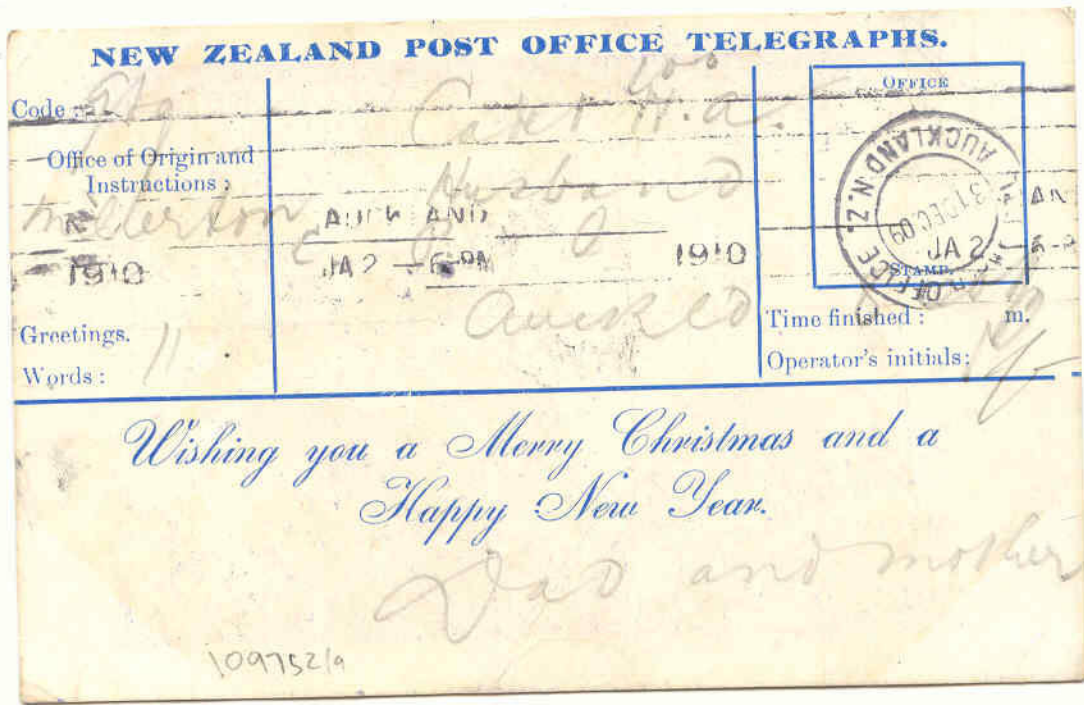 NEW ZEALAND POST OFFICE TELEGRAPHS.
Code :
Office of Origin and
Instructions :
Millerton
1910
Greetings.
Words : 11
100
H. A.
Husband
AUCKLAND
JA 2 — 6 - PM
1910
Auckld
OFFICE
STAMP.
AUCKLAND N.Z.
31 DEC 09
OFFICE
JA 2
Time finished : m.
Operator's initials:
Wishing you a Merry Christmas and a
Happy New Year.
Dad and mother
109752/9